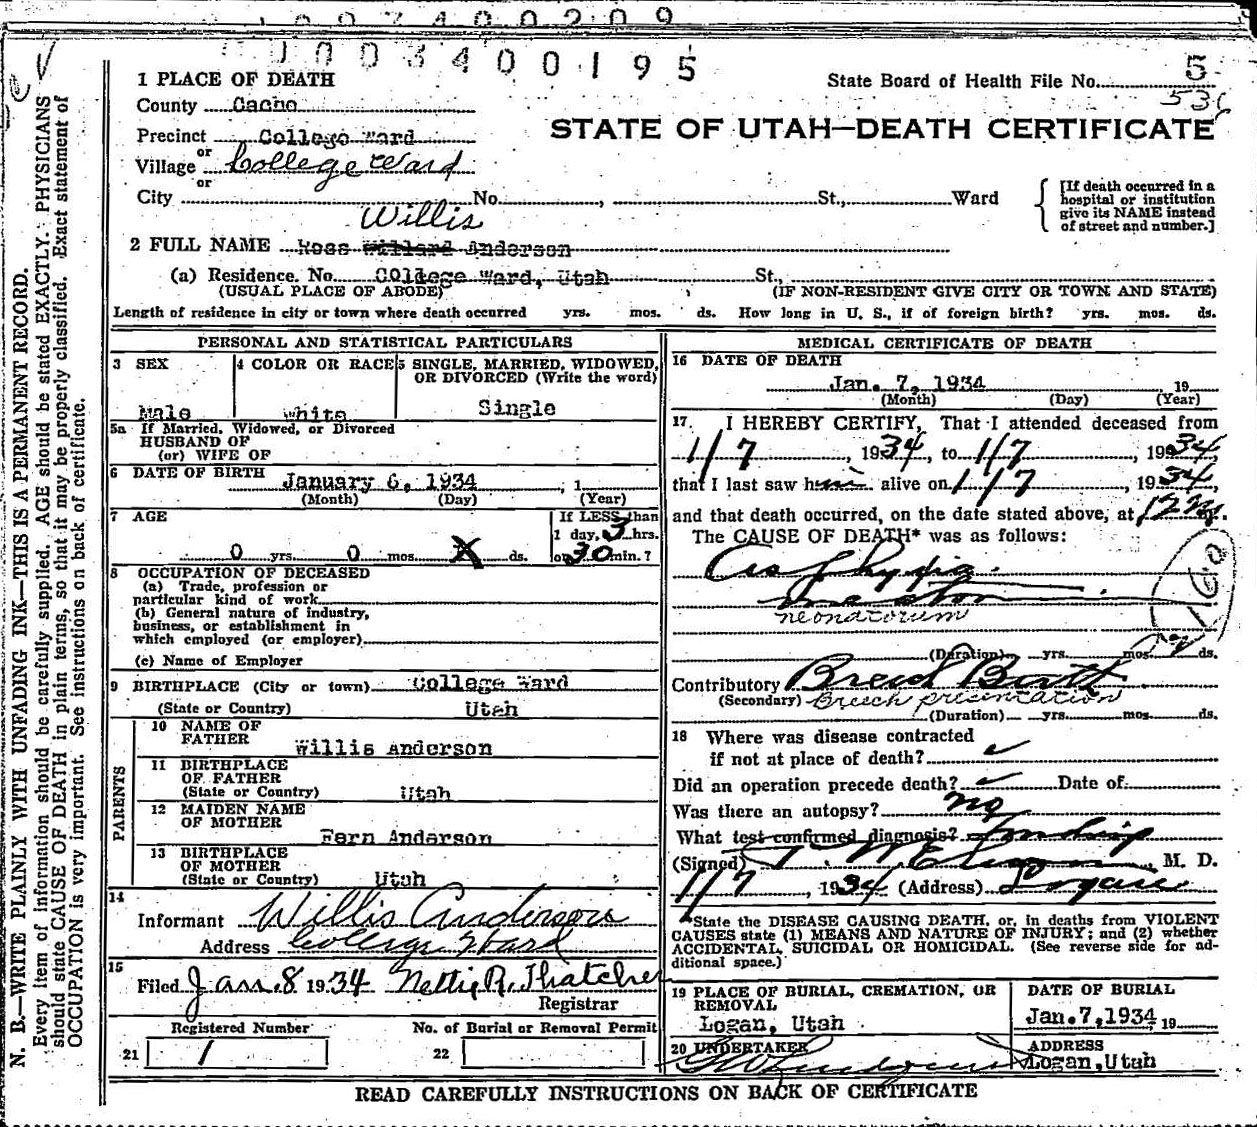 1 0 0 3 4 0 0 2 0 9
1 0 0 3 4 0 0 1 9 5
1 PLACE OF DEATH
State Board of Health File No. 5
536
County Cache
Precinct College Ward
STATE OF UTAH—DEATH CERTIFICATE
or
Village College Ward
or
City No. , St., Ward
[If death occurred in a
hospital or institution
give its NAME instead
of street and number.]
Willis
2 FULL NAME Ross Willard Anderson
(a) Residence. No. College Ward, Utah St.,
(USUAL PLACE OF ABODE) (IF NON-RESIDENT GIVE CITY OR TOWN AND STATE)
Length of residence in city or town where death occurred yrs. mos. ds. How long in U. S., if of foreign birth? yrs. mos. ds.
PERSONAL AND STATISTICAL PARTICULARS
3 SEX
Male
4 COLOR OR RACE
White
5 SINGLE, MARRIED, WIDOWED,
OR DIVORCED (Write the word)
Single
5a If Married, Widowed, or Divorced
HUSBAND OF
(or) WIFE OF
6 DATE OF BIRTH January 6, 1934 , 1
(Month) (Day) (Year)
7 AGE
0 yrs. 0 mos. X ds.
If LESS than
1 day, 3 hrs.
or 30 min.?
8 OCCUPATION OF DECEASED
(a) Trade, profession or
particular kind of work
(b) General nature of industry,
business, or establishment in
which employed (or employer)
(c) Name of Employer
9 BIRTHPLACE (City or town) College Ward
(State or Country) Utah
PARENTS
10 NAME OF
FATHER Willis Anderson
11 BIRTHPLACE
OF FATHER
(State or Country) Utah
12 MAIDEN NAME
OF MOTHER
Fern Anderson
13 BIRTHPLACE
OF MOTHER
(State or Country) Utah
14
Informant Willis Anderson
Address College Ward
15
Filed Jan. 8 1934 Nettie R. Thatcher
Registrar
Registered Number No. of Burial or Removal Permit
21 1 22
MEDICAL CERTIFICATE OF DEATH
16 DATE OF DEATH
Jan. 7, 1934 19
(Month) (Day) (Year)
17. I HEREBY CERTIFY, That I attended deceased from
1/7, 1934, to 1/7, 1934,
that I last saw him alive on 1/7, 1934,
and that death occurred, on the date stated above, at 12 m.
The CAUSE OF DEATH* was as follows:
Asphyxia
neonatorum
160
(Duration) yrs. mos. ds.
Contributory Breech Birth
(Secondary) Breech presentation
(Duration) yrs. mos. ds.
18 Where was disease contracted
if not at place of death?
Did an operation precede death? Date of
Was there an autopsy? no
What test confirmed diagnosis?
(Signed) M. D.
1/7, 1934 (Address) Logan
*State the DISEASE CAUSING DEATH, or, in deaths from VIOLENT
CAUSES state (1) MEANS AND NATURE OF INJURY; and (2) whether
ACCIDENTAL, SUICIDAL OR HOMICIDAL. (See reverse side for ad-
ditional space.)
19 PLACE OF BURIAL, CREMATION, OR
REMOVAL
Logan, Utah
DATE OF BURIAL
Jan.7,1934 19
20 UNDERTAKER
ADDRESS
Logan,Utah
READ CAREFULLY INSTRUCTIONS ON BACK OF CERTIFICATE
N. B.—WRITE PLAINLY WITH UNFADING INK—THIS IS A PERMANENT RECORD.
Every item of information should be carefully supplied. AGE should be stated EXACTLY. PHYSICIANS
should state CAUSE OF DEATH in plain terms, so that it may be properly classified. Exact statement of
OCCUPATION is very important. See instructions on back of certificate.